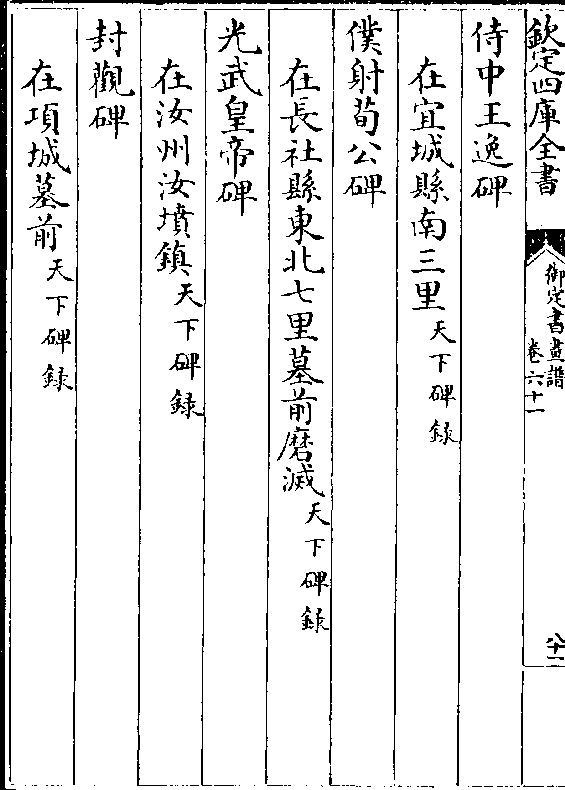 欽定四庫全書
御定書畫譜
卷六十一
八十一
侍中王逸碑
在宜城縣南三里天下碑録
僕射荀公碑
在長社縣東北七里墓前磨滅天下碑録
光武皇帝碑
在汝州汝墳鎮天下碑録
封觀碑
在項城墓前天下碑録